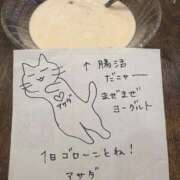 ↑ 腸活
だニャー
まぜまぜ
ヨーグルト
アサダ
1日ゴローことね!
アサダ